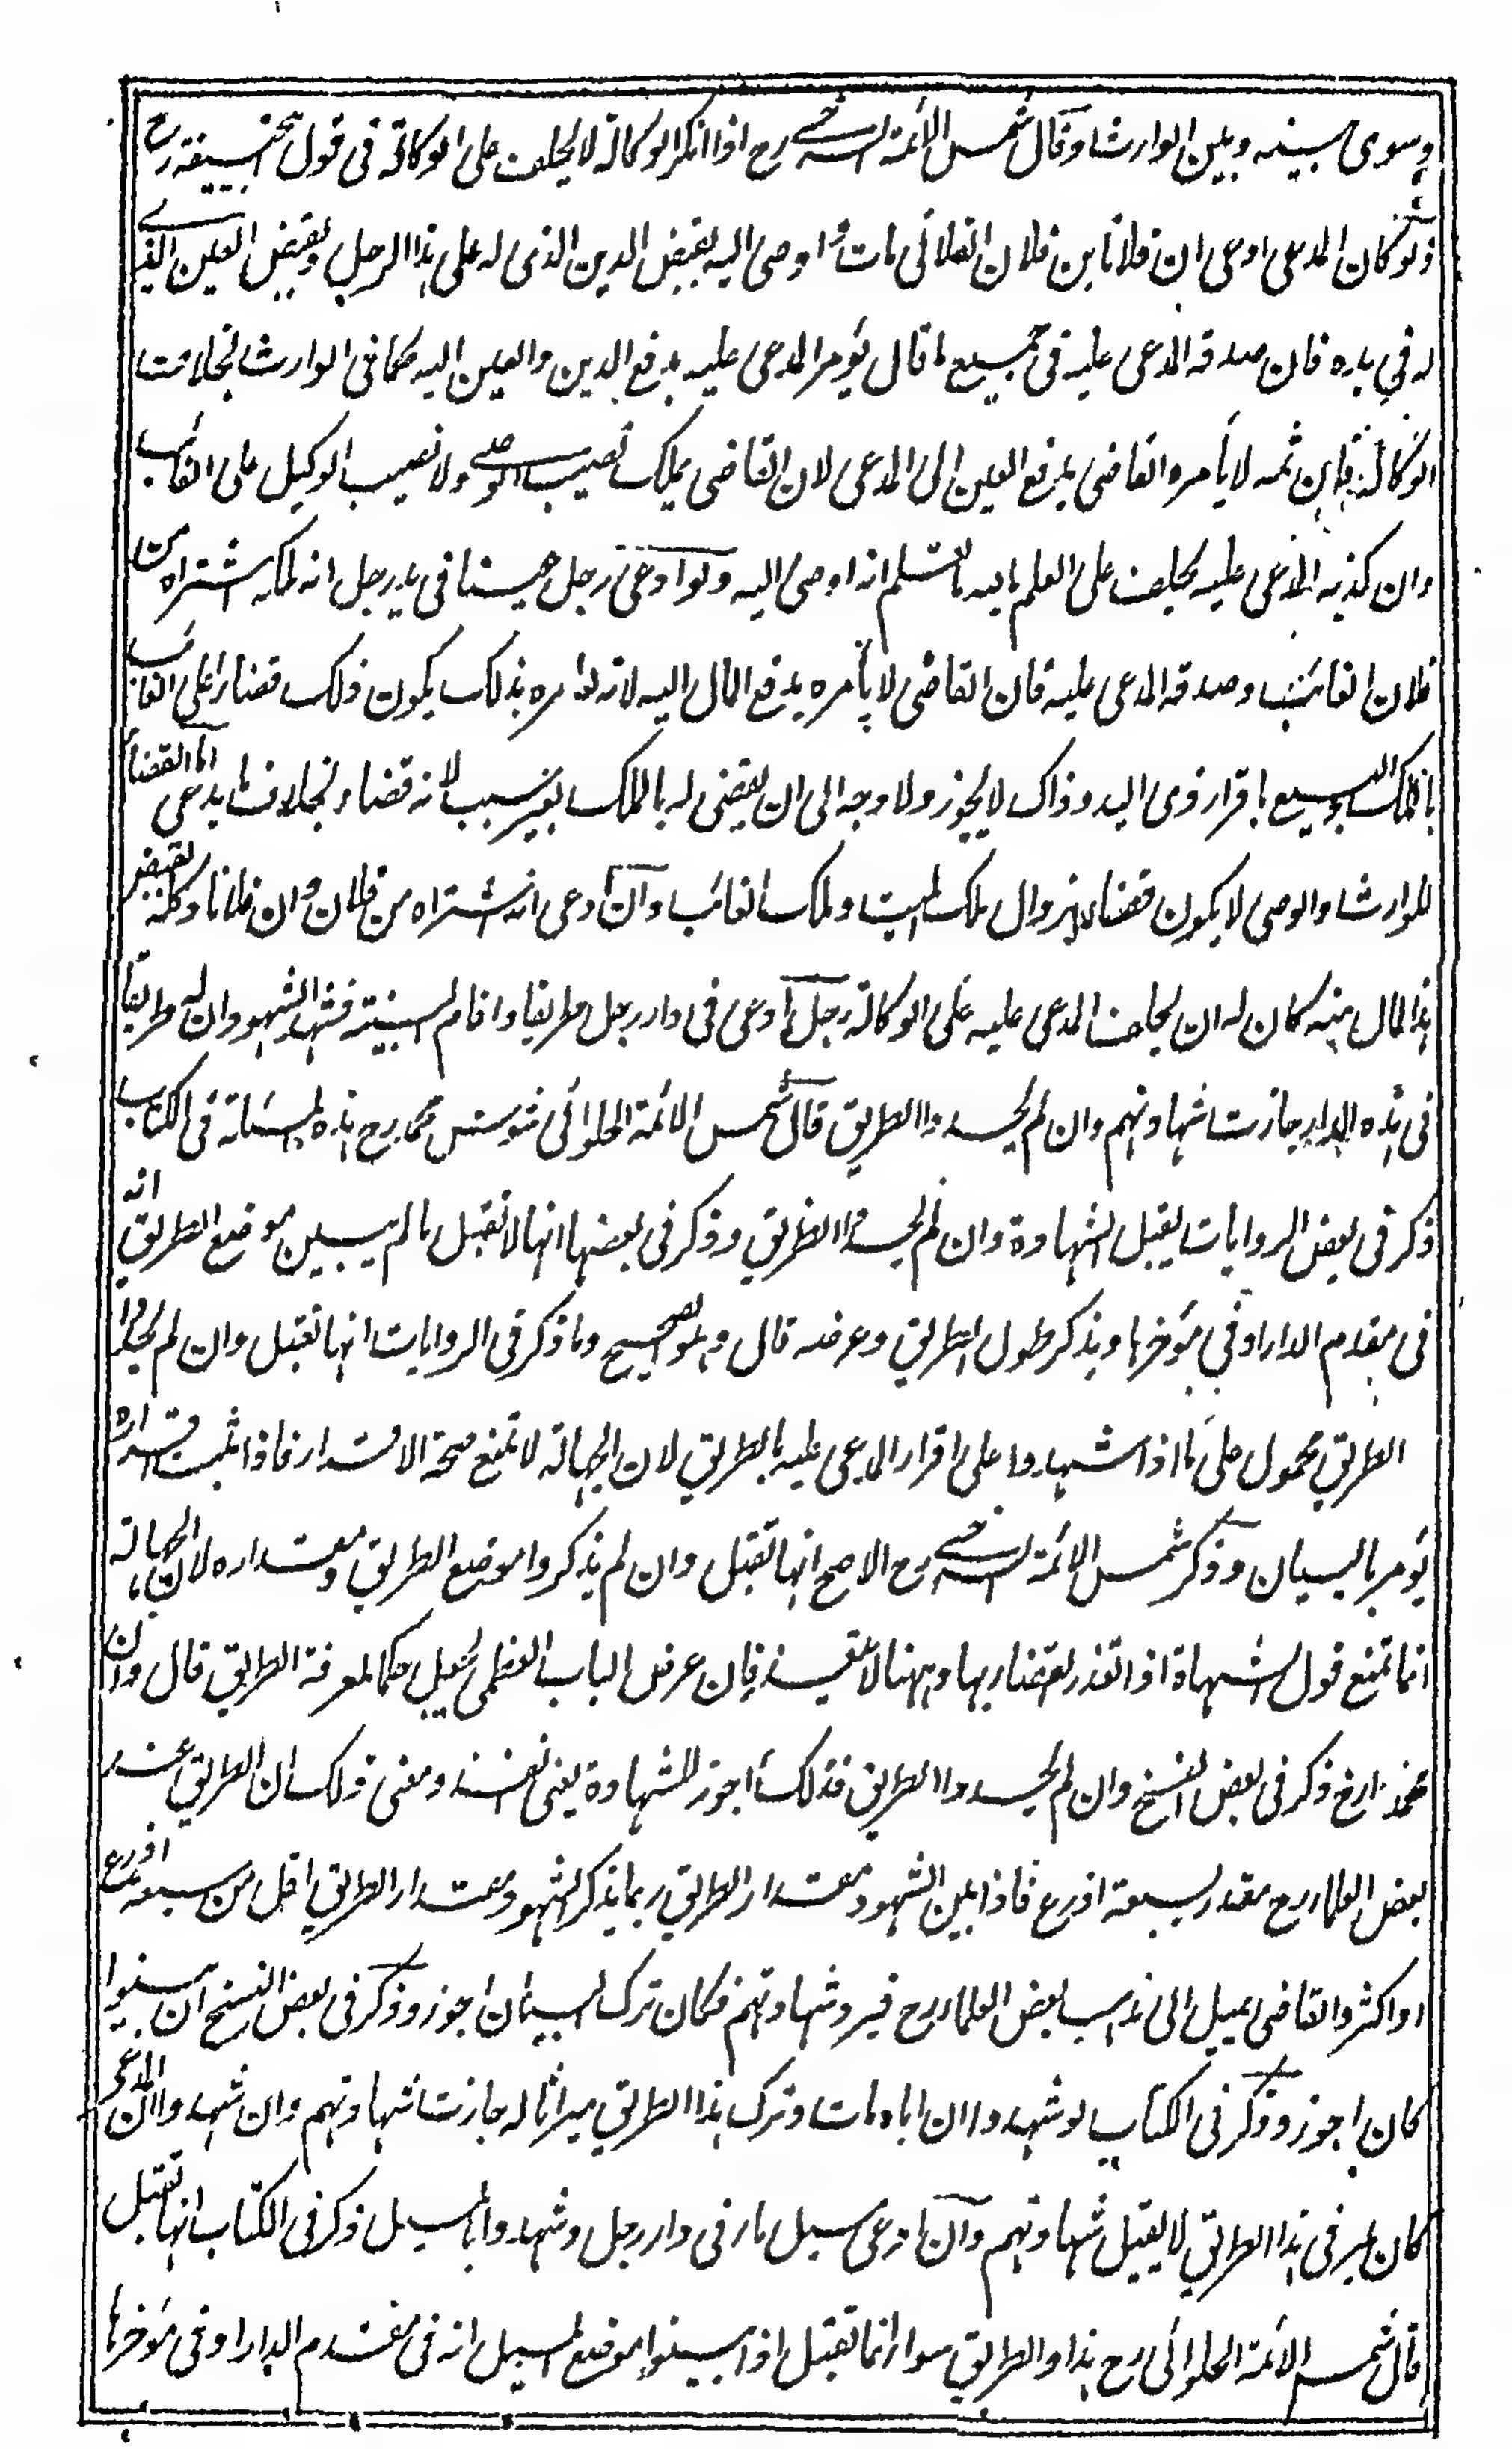 وسوى بينه وبين الوارث وقال شمس الائمة السرخسي رح اذا انكر الوكالة لا يحلف على الوكالة فى قول ابيحنيفة رح
ولو كان المدعى ادعى ان فلانا بن فلان الفلانى مات و اوصى اليه بقبض الدين الذى له على هذا الرجل وبقبض العين الذى
له في يده فان صدقه المدعى عليه فى جميع ما قال يؤمر المدعى عليه بدفع الدين والعين اليه كما فى الوارث بخلاف
الوكالة فان ثمه لا يأمره القاضى بدفع العين الى المدعى لان القاضى يملك نصيب الوصي ولا نصيب الوكيل على الغائب
وان كذبه المدعى عليه يحلف على العلم بالله ما تعلم انه اوصى اليه ولو ادعى رجل عينا فى يد رجل انه ملكه اشتراه من
فلان الغائب وصدقه المدعى عليه فان القاضى لا يأمره بدفع المال اليه لانه لو امره بذلك يكون ذلك قضاء على الغائب
بالملك والبيع باقرار ذى اليد وذاك لا يجوز ولا وجه الى ان يقضى له بالملك بغير سبب لانه قضاء بخلاف ما يدعى اما القضاء
للوارث والوصى لا يكون قضاء بزوال ملك الميت وملك الغائب وان ادعى انه اشتراه من فلان وان فلانا وكله بقبض
هذا المال منه كان له ان يحلف المدعى عليه على الوكالة رجل ادعى فى دار رجل طريقا واقام البينة فشهد الشهود ان له طريقا
فى هذه الدار جازت شهادتهم وان لم يحدوا الطريق قال شمس الائمة الحلوائى شوش محمد رح هذه المسئلة فى الكتاب
ذكر فى بعض الروايات يقبل الشهادة وان لم يحدوا الطريق وذكر فى بعضها انها لا تقبل ما لم يبين موضع الطريق انه
فى مقدم الدار او في مؤخرها ويذكر طول الطريق وعرضه قال وهو الصحيح وما ذكر فى الروايات انها تقبل وان لم يحدوا
الطريق محمول على ما اذا شهدوا على اقرار المدعى عليه بالطريق لان الجهالة لا تمنع صحة الاقرار فاذا ثبت اقراره
يؤمر بالبيان وذكر شمس الائمة السرخسي رح الاصح انها تقبل وان لم يذكروا موضع الطريق ومقداره لان الجهالة
انما تمنع قبول الشهادة اذا تعذر القضاء بها وههنا لا يتعذر فان عرض الباب العظمى يجعل حكما لمعرفة الطريق قال وان
محمدا رح ذكر فى بعض النسخ وان لم يحدوا الطريق فذلك اجوز للشهادة يعنى نفسه ومعنى ذلك ان الطريق عند
بعض العلماء رح مقدر بسبعة اذرع فاذا بين الشهود مقدار الطريق ربما يذكر الشهود مقدار الطريق اقل من سبعة اذرع
او اكثر والقاضى يميل الى مذهب بعض العلماء رح فيرد شهادتهم فكان ترك البيان اجوز وذكر فى بعض النسخ ان بينوا
كان اجوز وذكر فى الكتاب لو شهدوا ان اباه مات وترك هذا الطريق ميراثا له جازت شهادتهم وان شهدوا ان المدعى
كان يمر فى هذا الطريق لا يقبل شهادتهم وان ادعى مسيل ماء فى دار رجل وشهدوا بالمسيل ذكر فى الكتاب انها تقبل
قال شمس الائمة الحلوائى رح هذا والطريق سواء انما تقبل اذا بينوا موضع المسيل انه فى مقدم الدار او فى مؤخرها